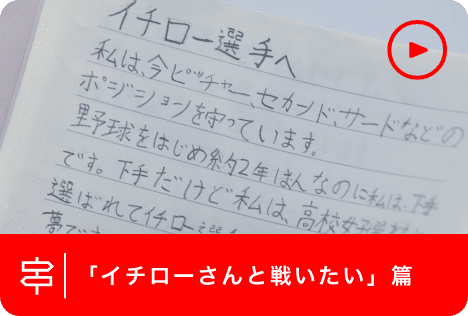 イチロー選手へ
私は、今ピッチャー、セカンド、サードなどの
ポジションを守っています。
野球をはじめ約2年はんなのに私は、下手
です。下手だけど私は、高校女子
選ばれてイチロー選
夢で
「イチローさんと戦いたい」篇